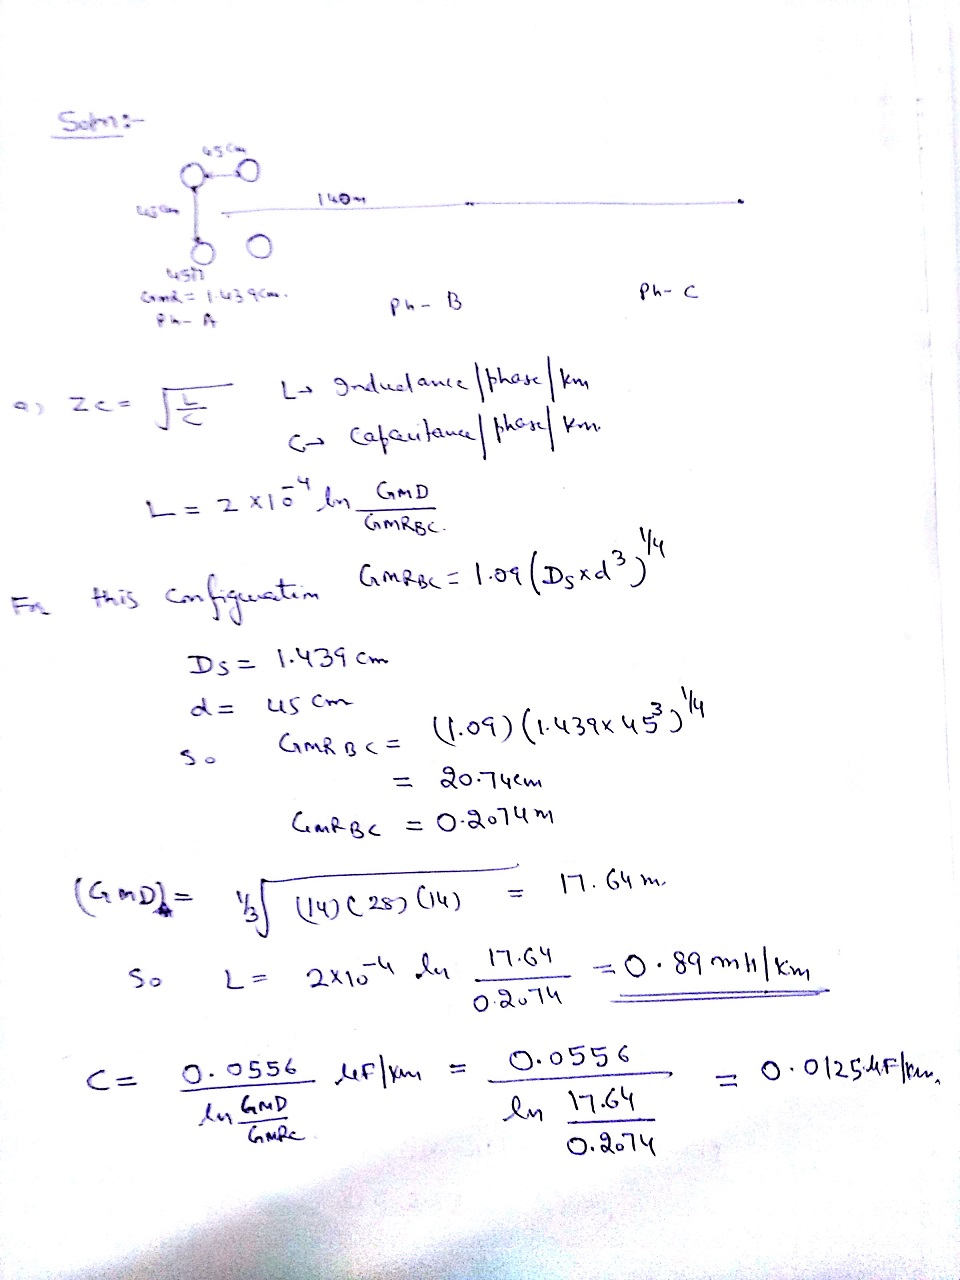 Soln:-
45cm
140m
45cm
GMR = 1.439cm.
Ph-A
Ph-B
Ph-C
a) Zc = √L/C
L→ Inductance/phase/km
C→ Capacitance/phase/km.
L = 2 × 10⁻⁴ ln GMD/GMRBC.
For this configuration GMRBC = 1.09 (Ds×d³)^1/4
Ds = 1.439 cm
d = 45 cm
So GMRBC = (1.09) (1.439×45³)^1/4
= 20.74cm
GMRBC = 0.2074m
(GMD) = 1/3√(14)(28)(14) = 17.64 m.
So L = 2×10⁻⁴ ln 17.64/0.2074 = 0.89 mH/km
C = 0.0556/ln GMD/GMRC μF/km = 0.0556/ln 17.64/0.2074 = 0.0125μF/km.